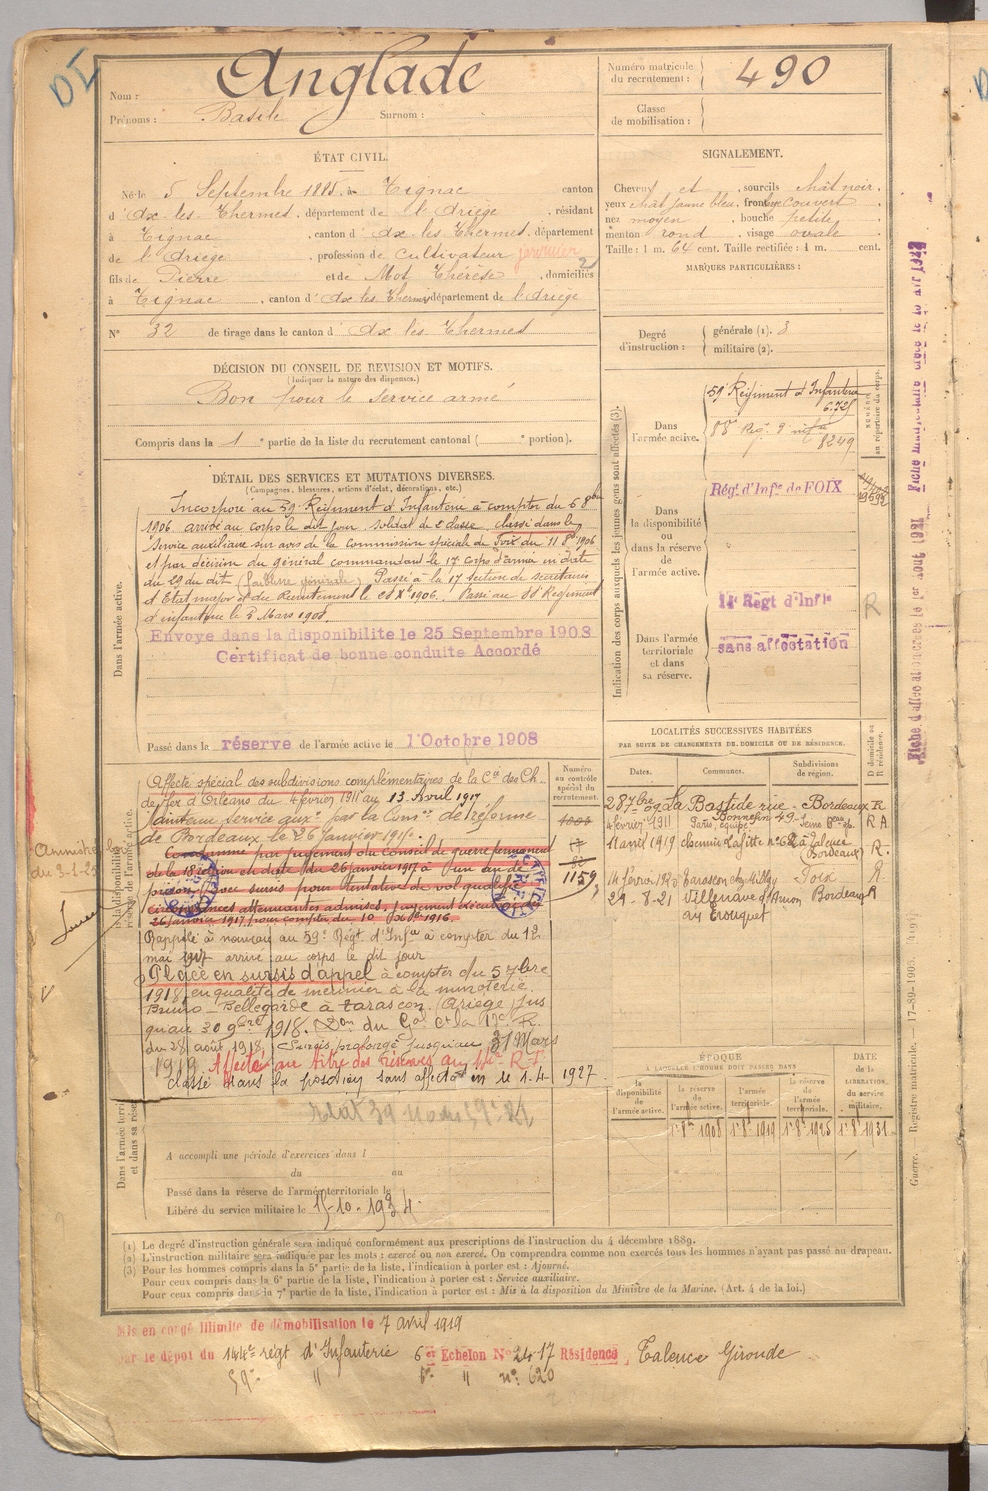 DI
Anglade
Nom :
Prénoms : Basile Surnom :
Numéro matricule
du recrutement : 490
Classe
de mobilisation :
ÉTAT CIVIL.
Né le 5 Septembre 1885, à Tignac canton
d'Ax-les-Thermes, département de l'Ariège, résidant
à Tignac, canton d'Ax-les-Thermes, département
de l'Ariège, profession de Cultivateur
fils de Pierre et de Mot Thérèse, domiciliés
à Tignac, canton d'Ax les Thermes, département de l'Ariège
N° 32 de tirage dans le canton d'Ax les Thermes
SIGNALEMENT.
Cheveux et sourcils chât noir.
yeux chât jaune bleu, front couvert
nez moyen, bouche petite
menton rond, visage ovale
Taille : 1 m. 64 cent. Taille rectifiée : 1 m. cent.
MARQUES PARTICULIÈRES :
Degré
d'instruction :
générale (1). 3
militaire (2).
DÉCISION DU CONSEIL DE REVISION ET MOTIFS.
(Indiquer la nature des dispenses.)
Bon pour le Service armé
Compris dans la 1e partie de la liste du recrutement cantonal ( e portion).
DÉTAIL DES SERVICES ET MUTATIONS DIVERSES.
(Campagnes, blessures, actions d'éclat, décorations, etc.)
Dans l'armée active.
Incorporé au 59e Régiment d'Infanterie à compter du 6 8bre
1906 arrivé au corps le dit jour soldat de 2e classe classé dans le
Service auxiliaire sur avis de la Commission spéciale de Foix du 11 8bre 1906
et par décision du général commandant le 17e Corps d'armée en date
du 29 du dit (faiblesse générale) Passé à la 17e section de secrétaires
d'Etat major et du Recrutement le Xbre 1906. Passé au 88e Régiment
d'infanterie le Mars 1908.
Envoyé dans la disponibilité le 25 Septembre 1908
Certificat de bonne conduite Accordé
Passé dans la réserve de l'armée active le 1er Octobre 1908
Indication des corps auxquels les jeunes gens sont affectés (3).
NUMÉRO
au répertoire du corps.
Dans
l'armée active.
59e Régiment d'Infanterie
6.725
88e Rég. d'infie
8249
Dans
la disponibilité
ou
dans la réserve
de
l'armée active.
Régt d'Infie de FOIX
Dans l'armée
territoriale
et dans
sa réserve.
14e Régt d'Infie
sans affectation
R
LOCALITÉS SUCCESSIVES HABITÉES
PAR SUITE DE CHANGEMENTS DE DOMICILE OU DE RÉSIDENCE.
Dates. Communes. Subdivisions
de région.
D domicile ou
R résidence.
28 7bre 09 La Bastide rue Bordeaux R
Bonnefin 49
4 février 1911 Paris, équipe Seine R A
11 avril 1919 chemin Lafitte n° 62 à Talence Bordeaux R.
14 février 1920 Tarascon Foix R
29-8-21 Villenave d'Ornon Bordeaux R
Dans la disponibilité
réserve de l'armée active.
Numéro
au contrôle
spécial du
recrutement.
1159
Affecté spécial des subdivisions complémentaires de la Cie des Ch.
de fer d'Orléans du 4 février 1911 au 13 Avril 1917
Maintenu service auxre par la Comon de réforme
de Bordeaux le 26 janvier 191
Condamné par jugement du Conseil de guerre permanent
de la 18e région en date du 26 janvier 1917 à Un an de
prison avec sursis pour tentative de vol qualifié
circonstances atténuantes admises, jugement exécutoire
26 janvier 1917, pour compter du 10 Xbre 1916.
Rappelé à nouveau au 59e Régt d'Infie à compter du 1er
mai 1917 arrivé au corps le dit jour
Placé en sursis d'appel à compter du 5 7bre
1918, en qualité de meunier à la minoterie
Bruno Bellegarde à Tarascon (Ariège) jus
qu'au 30 9bre 1918. Don du Gal Ct la 17e R.
du 28 août 1918. Sursis prolongé jusqu'au 31 Mars
1919 Affecté au titre des réserves au R.I.
Classé dans la position sans affecton en le 1.4 1927.
Amnistie loi
du 3-1-25
Dans l'armée territ.
et dans sa réserve
A accompli une période d'exercices dans l
du au
Passé dans la réserve de l'armée territoriale le
Libéré du service militaire le 15-10-1934.
ÉPOQUE
À LAQUELLE L'HOMME DOIT PASSER DANS
la
disponibilité
de
l'armée active.
la réserve
de
l'armée active.
l'armée
territoriale.
la réserve
de
l'armée
territoriale.
DATE
de la
LIBÉRATION
du service
militaire.
1er 8bre 1908 1er 8bre 1919 1er 8bre 1925 1er 8bre 1931
Guerre. Registre matricule. — 17-89-1905.
(1) Le degré d'instruction générale sera indiqué conformément aux prescriptions de l'instruction du 4 décembre 1889.
(2) L'instruction militaire sera indiquée par les mots : exercé ou non exercé. On comprendra comme non exercés tous les hommes n'ayant pas passé au drapeau.
(3) Pour les hommes compris dans la 5e partie de la liste, l'indication à porter est : Ajourné.
Pour ceux compris dans la 6e partie de la liste, l'indication à porter est : Service auxiliaire.
Pour ceux compris dans la 7e partie de la liste, l'indication à porter est : Mis à la disposition du Ministre de la Marine. (Art. 4 de la loi.)
Mis en congé illimité de démobilisation le 7 avril 1919
par le dépôt du 144e régt d'Infanterie 6e Echelon N° 24-17 Résidence, Talence Gironde
59e " 6e " n° 620